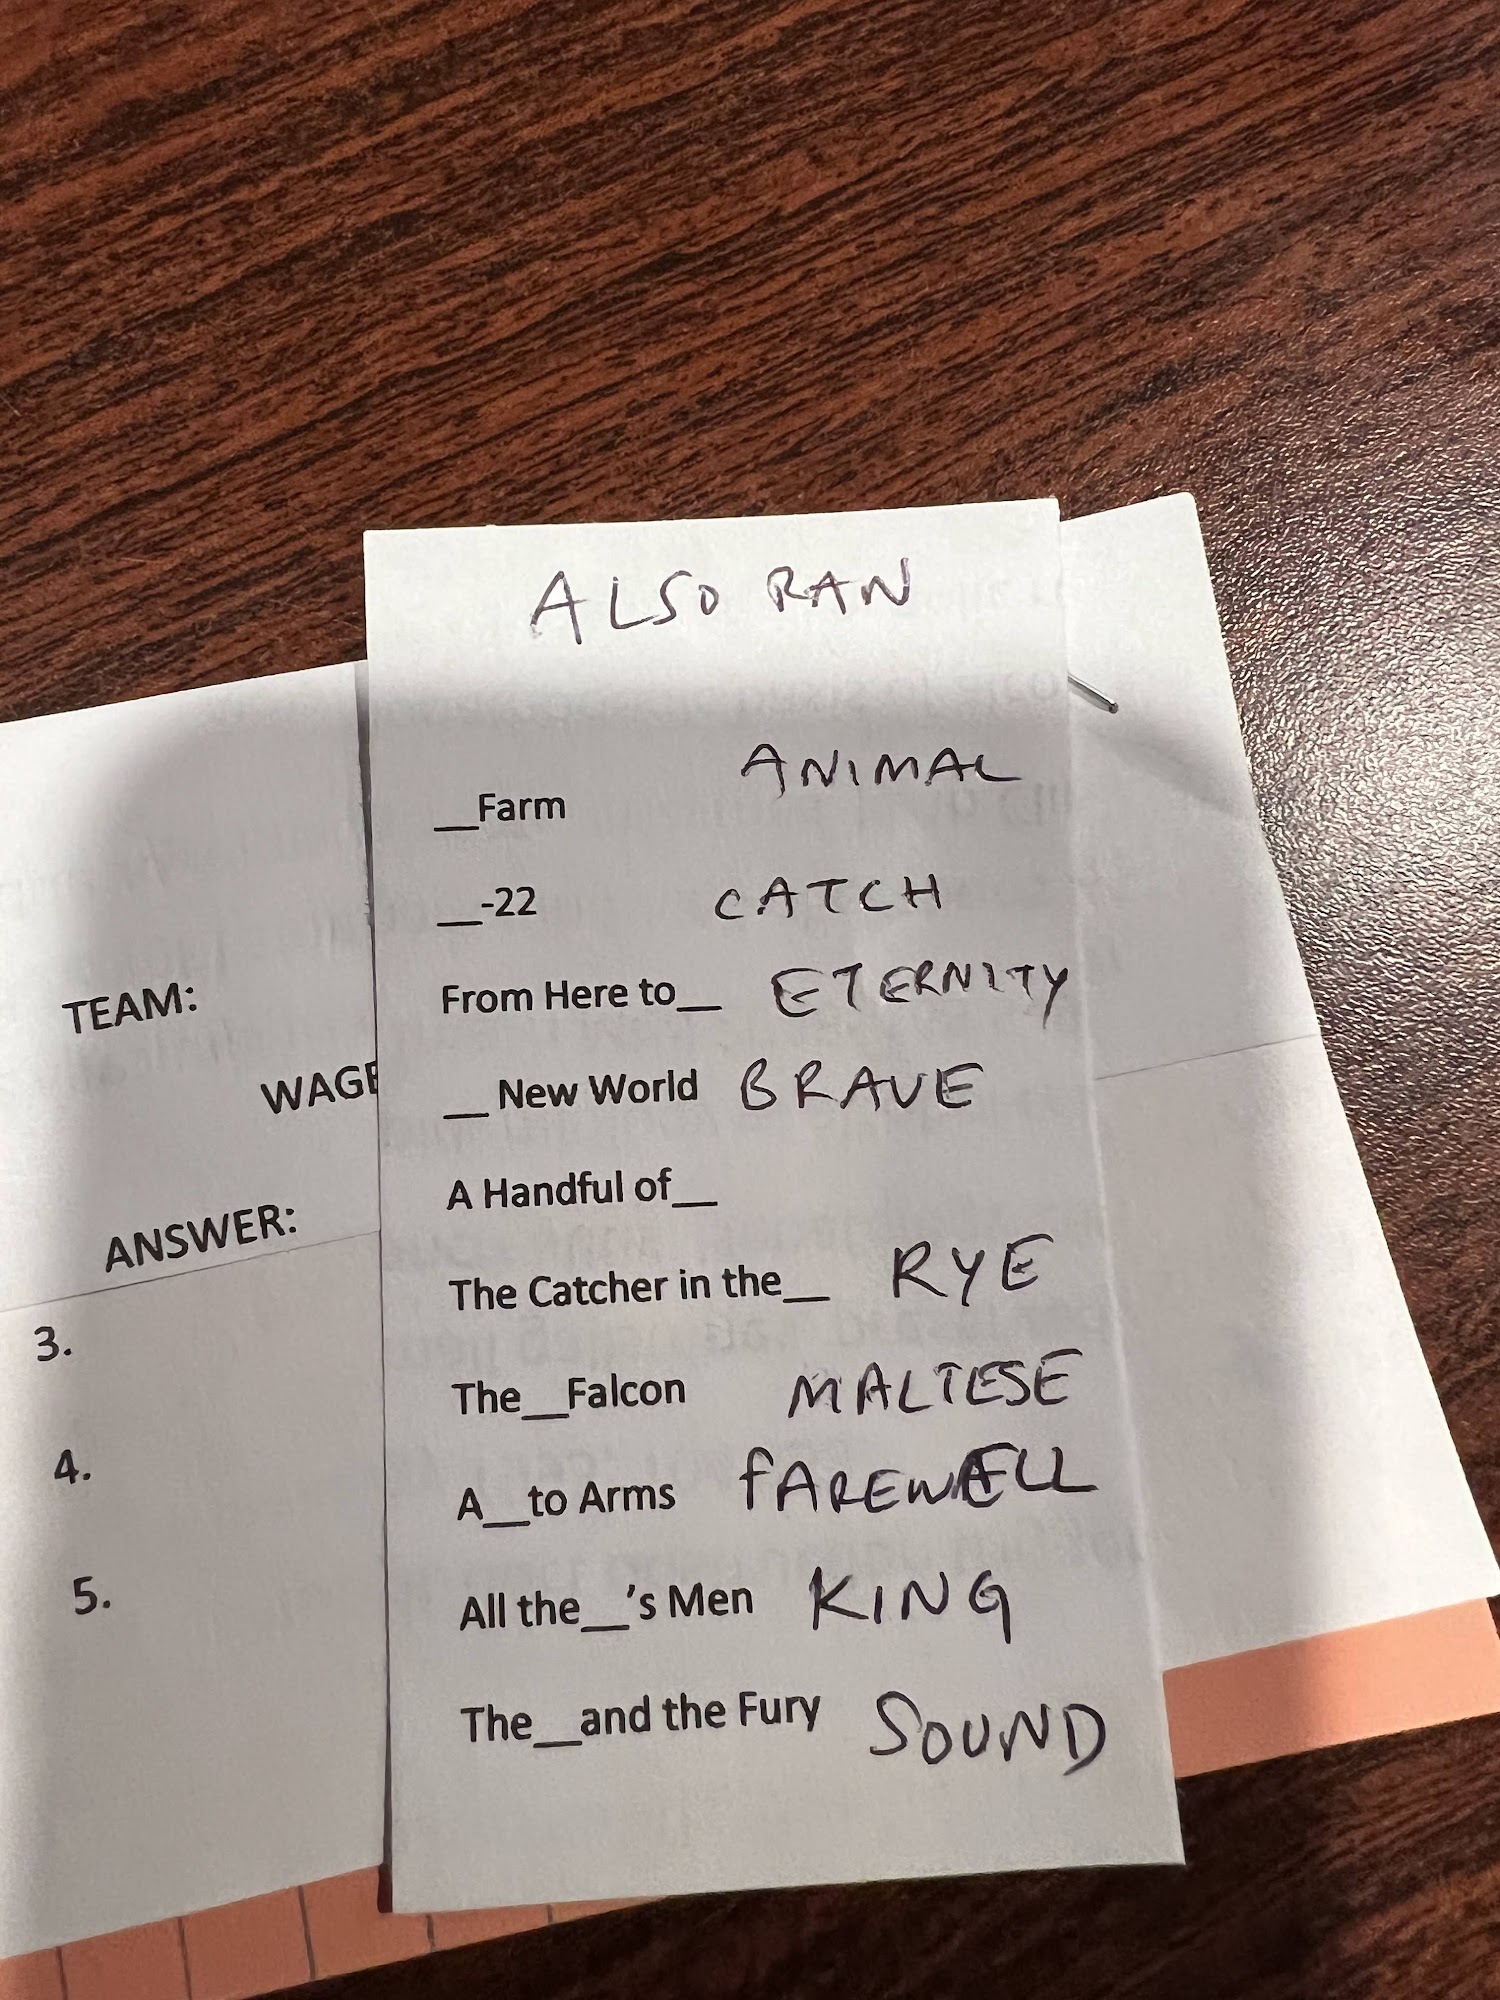 ALSO RAN
__Farm ANIMAL
__-22 CATCH
From Here to__ ETERNITY
__ New World BRAVE
A Handful of__
The Catcher in the__ RYE
The__Falcon MALTESE
A__to Arms FAREWELL
All the__'s Men KING
The__and the Fury SOUND
TEAM:
WAGE
ANSWER:
3.
4.
5.